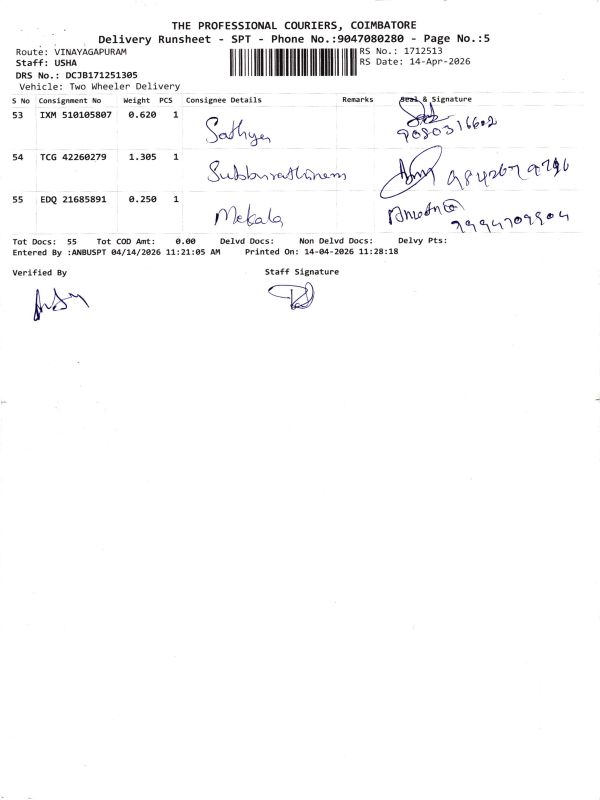 THE PROFESSIONAL COURIERS, COIMBATORE
Delivery Runsheet - SPT - Phone No.:9047080280 - Page No.:5
Route: VINAYAGAPURAM
RS No.: 1712513
Staff: USHA
RS Date: 14-Apr-2026
DRS No.: DCJB171251305
Vehicle: Two Wheeler Delivery
S No Consignment No Weight PCS Consignee Details Remarks Seal & Signature
53 IXM 510105807 0.620 1 Sathya 9080316602
54 TCG 42260279 1.305 1 Subburathinam
55 EDQ 21685891 0.250 1 Mekala 9994709904
Tot Docs: 55 Tot COD Amt: 0.00 Delvd Docs: Non Delvd Docs: Delvy Pts:
Entered By :ANBUSPT 04/14/2026 11:21:05 AM Printed On: 14-04-2026 11:28:18
Verified By Staff Signature